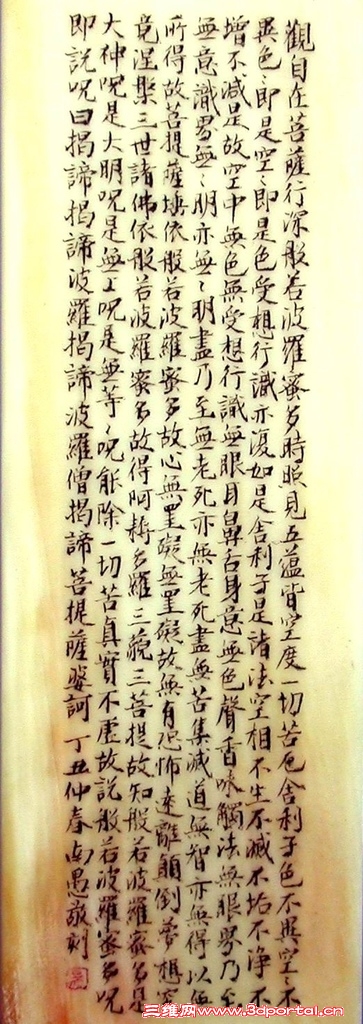 觀自在菩薩行深般若波羅蜜多時照見五蘊皆空度一切苦厄舍利子色不異空空不
異色色即是空空即是色受想行識亦復如是舍利子是諸法空相不生不滅不垢不淨不
增不減是故空中無色無受想行識無眼耳鼻舌身意無色聲香味觸法無眼界乃至
無意識界無無明亦無無明盡乃至無老死亦無老死盡無苦集滅道無智亦無得以無
所得故菩提薩埵依般若波羅蜜多故心無罣礙無罣礙故無有恐怖遠離顛倒夢想究
竟涅槃三世諸佛依般若波羅蜜多故得阿耨多羅三藐三菩提故知般若波羅蜜多是
大神咒是大明咒是無上咒是無等等咒能除一切苦真實不虛故說般若波羅蜜多咒
即說咒曰揭諦揭諦波羅揭諦波羅僧揭諦菩提薩婆訶 丁丑仲春南愚敬刻
三维网 www.3dportal.cn